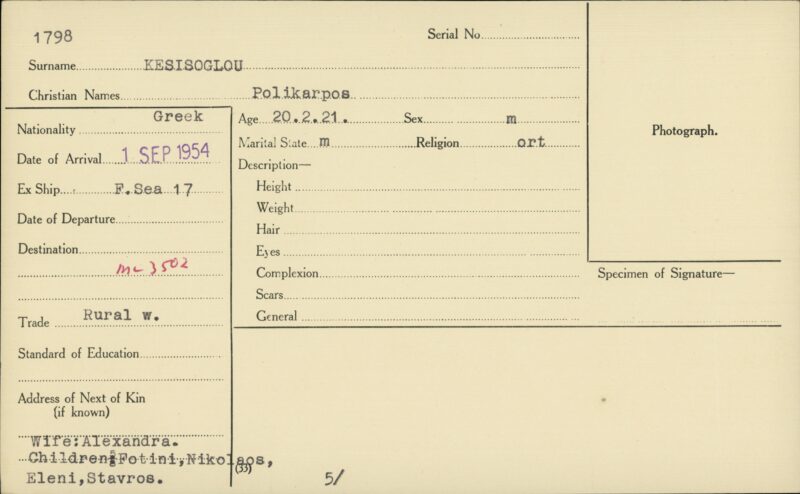 1798
Serial No.
Surname KESISOGLOU
Christian Names Polikarpos
Nationality Greek
Date of Arrival 1 SEP 1954
Ex Ship F.Sea 17
Date of Departure
Destination
mc 3502
Trade Rural w.
Standard of Education
Address of Next of Kin
(if known)
Wife:Alexandra.
Children:Fotini,Nikolaos,
Eleni,Stavros.
Age 20.2.21. Sex m
Marital State m Religion ort
Description—
Height
Weight
Hair
Eyes
Complexion
Scars
General
Photograph.
Specimen of Signature—
(33)
5/